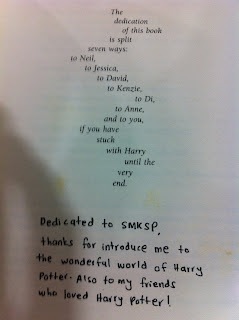 The
dedication
of this book
is split
seven ways:
to Neil,
to Jessica,
to David,
to Kenzie,
to Di,
to Anne,
and to you,
if you have
stuck
with Harry
until the
very
end.
Dedicated to SMKSP,
thanks for introduce me to
the wonderful world of Harry
Potter. Also to my friends
who loved Harry Potter!